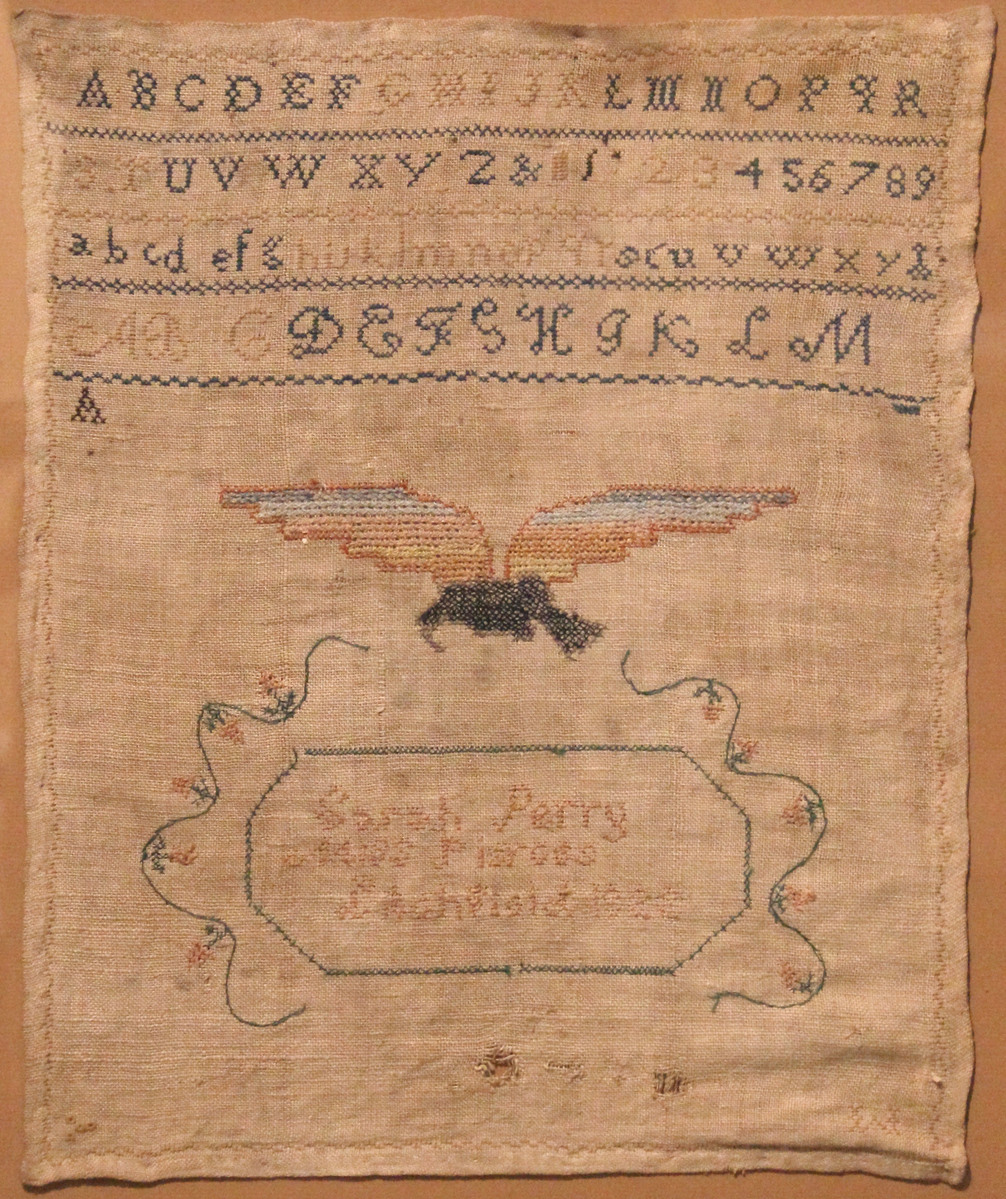 A B C D E F G H I J K L M N O P Q R
S T U V W X Y Z & 1 2 3 4 5 6 7 8 9
a b c d e f g h i j k l m n o p q r s t u v w x y &
A B C D E F G H I K L M
A
Sarah Perry
Pierces
Litchfield